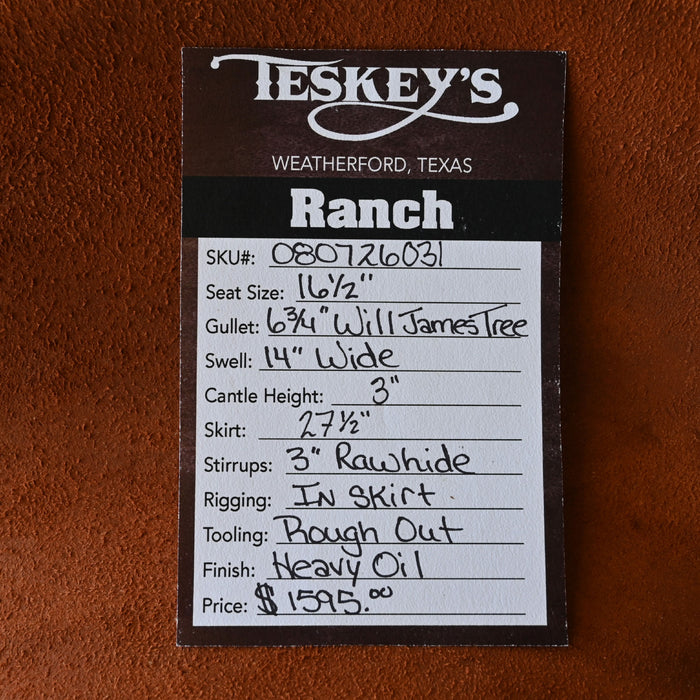 TESKEY'S
WEATHERFORD, TEXAS
Ranch
SKU#: 080726031
Seat Size: 16½"
Gullet: 6¾" Will James Tree
Swell: 14" Wide
Cantle Height: 3"
Skirt: 27½"
Stirrups: 3" Rawhide
Rigging: In Skirt
Tooling: Rough Out
Finish: Heavy Oil
Price: $1595.00